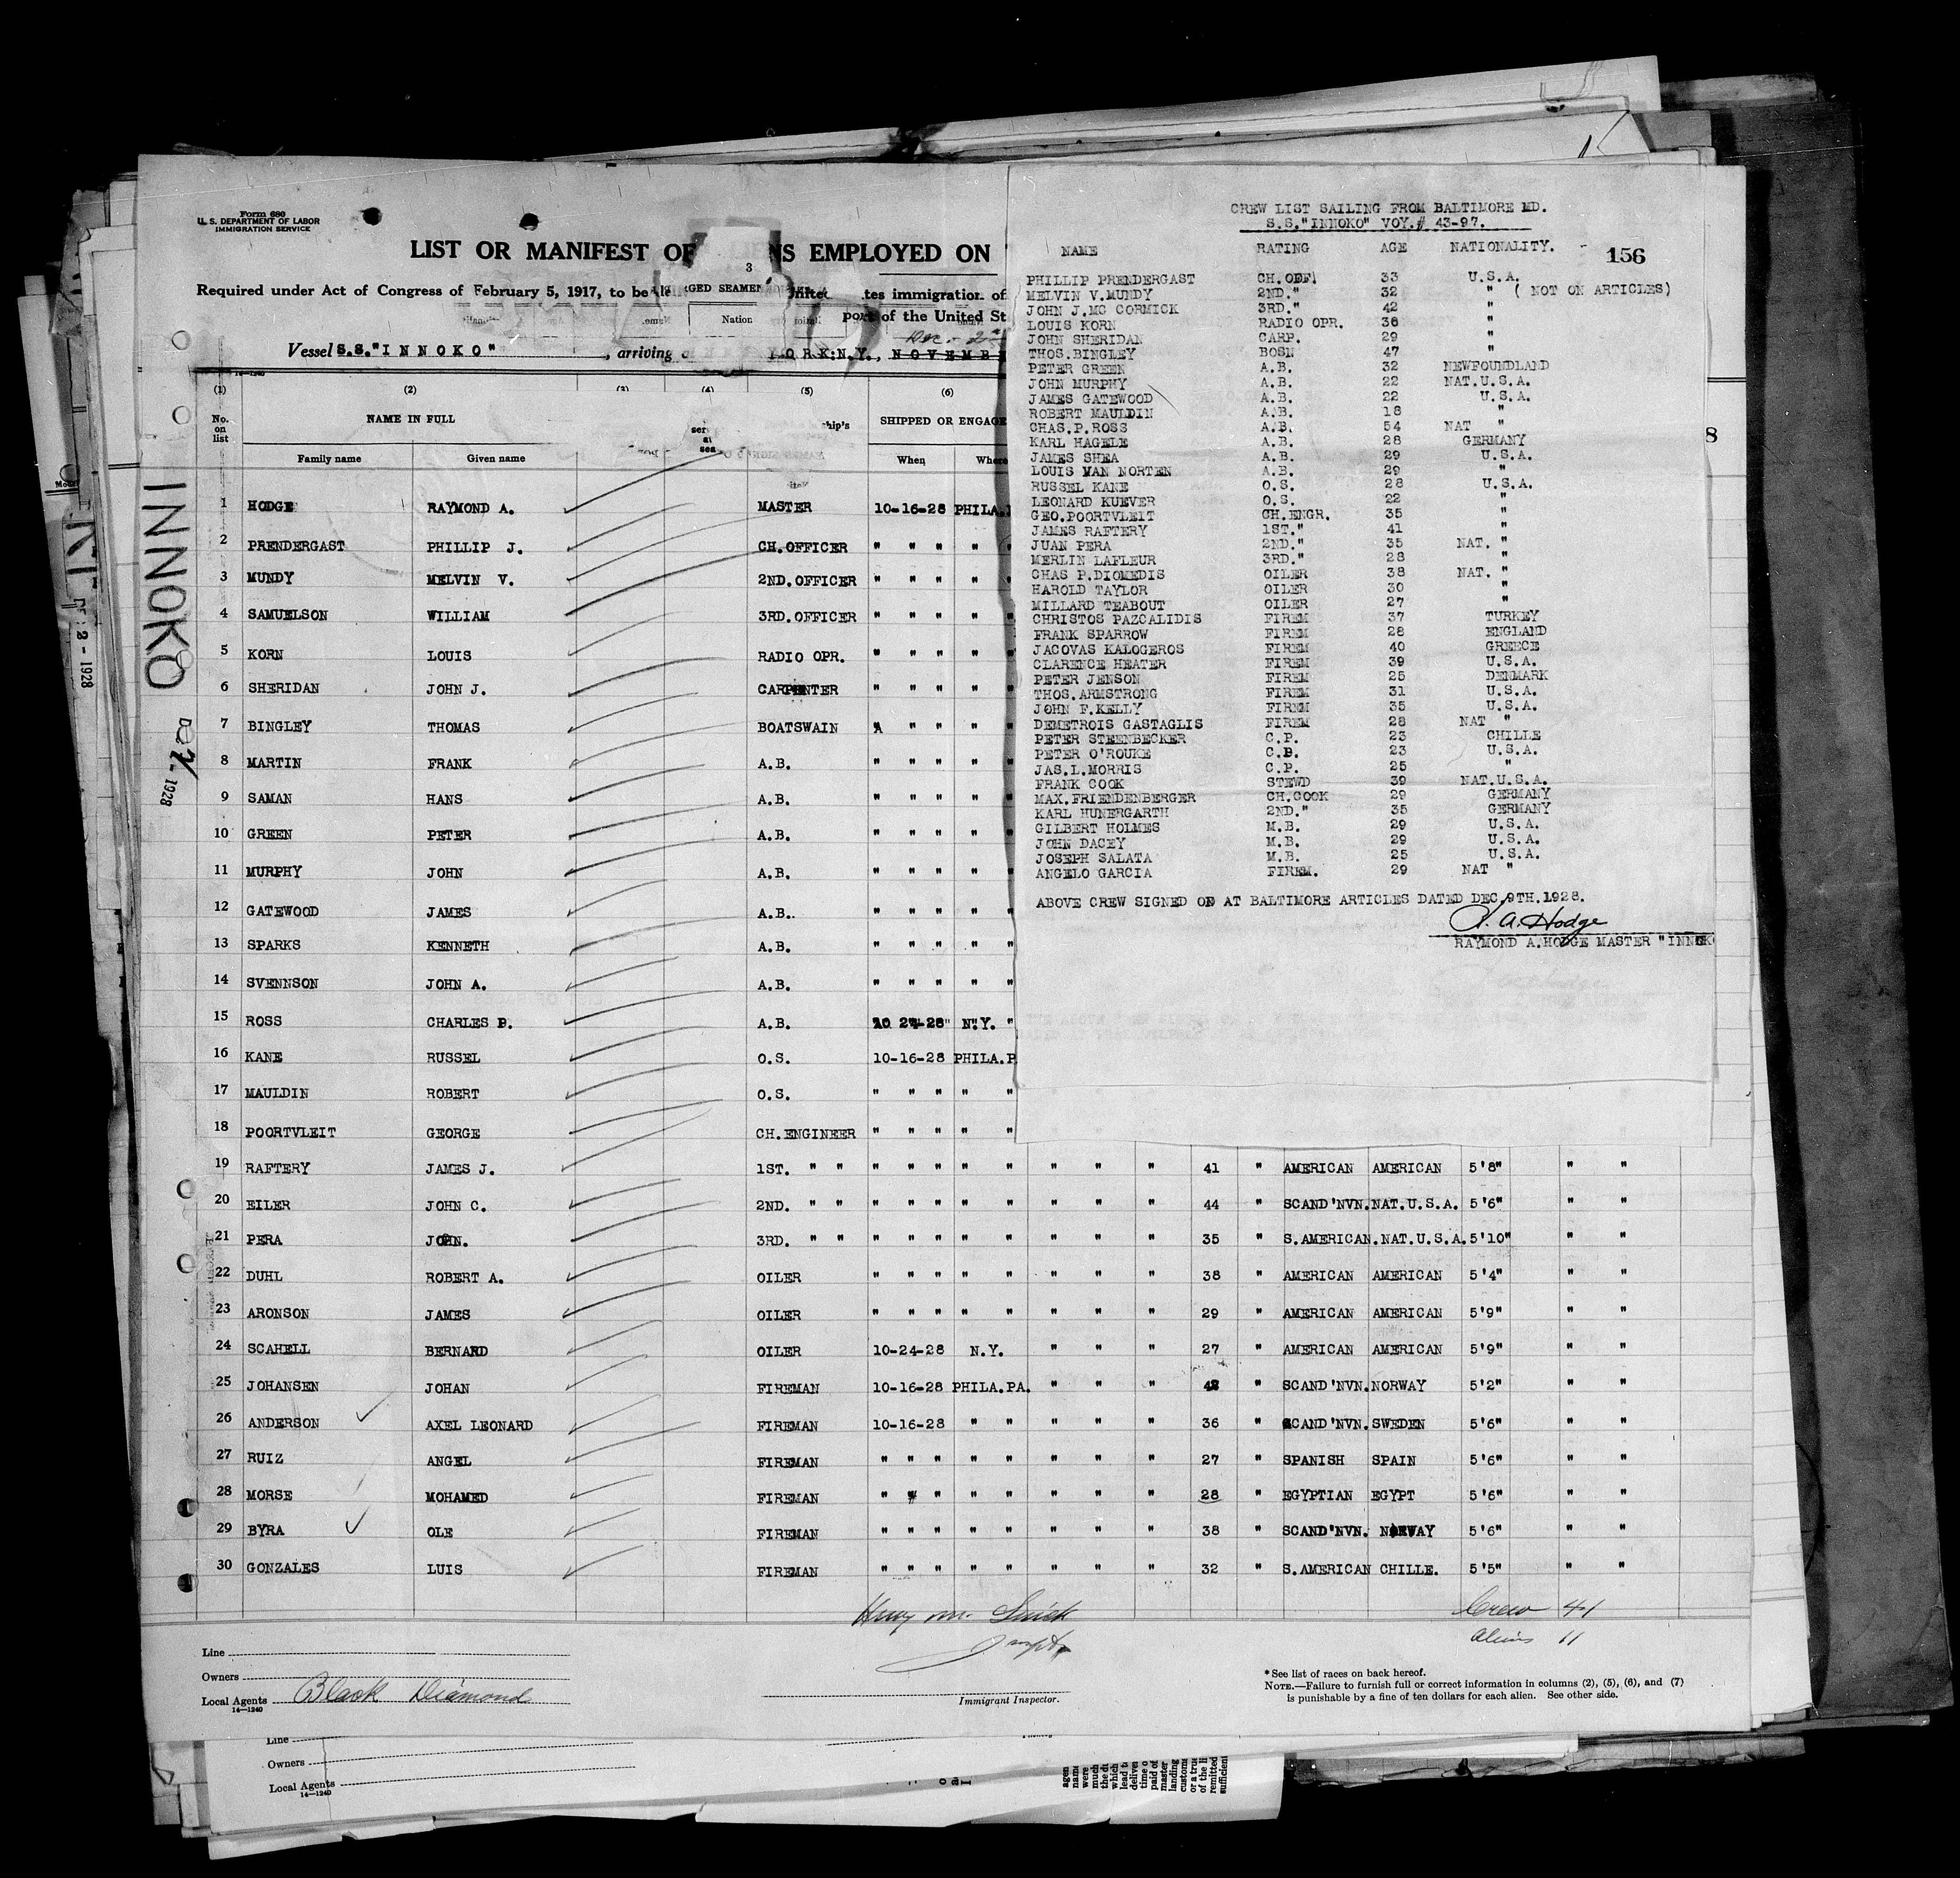 Form 680
U. S. DEPARTMENT OF LABOR
IMMIGRATION SERVICE
LIST OR MANIFEST OF NS EMPLOYED ON
3
Required under Act of Congress of February 5, 1917, to be RGED SEAMEN tes immigration of
Nation port of the United St
Dec. 2
Vessel S.S. "INNOKO" , arriving ORK:N.Y., NOVEMBE
(1) (2) (3) (4) (5) (6)
No. on list NAME IN FULL ser at sea hip's SHIPPED OR ENGAGE
Family name Given name When Where
1 HODGE RAYMOND A. MASTER 10-16-28 PHILA.
2 PRENDERGAST PHILLIP J. CH.OFFICER " " " " "
3 MUNDY MELVIN V. 2ND.OFFICER " " " " "
4 SAMUELSON WILLIAM 3RD.OFFICER " " " " "
5 KORN LOUIS RADIO OPR. " " " " "
6 SHERIDAN JOHN J. CARPENTER " " " " "
7 BINGLEY THOMAS BOATSWAIN " " " "
8 MARTIN FRANK A.B. " " " " "
9 SAMAN HANS A.B. " " " " "
10 GREEN PETER A.B. " " " " "
11 MURPHY JOHN A.B. " " " " "
12 GATEWOOD JAMES A.B.. " " " " "
13 SPARKS KENNETH A.B. " " " " "
14 SVENNSON JOHN A. A.B. " " " " "
15 ROSS CHARLES P. A.B. 10 24-28" N.Y. "
16 KANE RUSSEL O.S. 10-16-28 PHILA.P
17 MAULDIN ROBERT O.S. " " " " "
18 POORTVLEIT GEORGE CH.ENGINEER " " " " "
19 RAFTERY JAMES J. 1ST. " " " " " " " " " " 41 " AMERICAN AMERICAN 5'8" " "
20 EILER JOHN C. 2ND. " " " " " " " " " " 44 " SCAND'NVN.NAT.U.S.A. 5'6" " "
21 PERA JOHN. 3RD. " " " " " " " " " " 35 " S.AMERICAN.NAT.U.S.A.5'10" " "
22 DUHL ROBERT A. OILER " " " " " " " " 38 " AMERICAN AMERICAN 5'4" " "
23 ARONSON JAMES OILER " " " " " " " " 29 " AMERICAN AMERICAN 5'9" " "
24 SCAHELL BERNARD OILER 10-24-28 N.Y. " " " 27 " AMERICAN AMERICAN 5'9" " "
25 JOHANSEN JOHAN FIREMAN 10-16-28 PHILA.PA. " " " 42 " SCAND'NVN.NORWAY 5'2" " "
26 ANDERSON AXEL LEONARD FIREMAN 10-16-28 " " " " " 36 " SCAND'NVN.SWEDEN 5'6" " "
27 RUIZ ANGEL FIREMAN " " " " " " " " 27 " SPANISH SPAIN 5'6" " "
28 MORSE MOHAMED FIREMAN " " " " " " " " 28 " EGYPTIAN EGYPT 5'6" " "
29 BYRA OLE FIREMAN " " " " " " " " 38 " SCAND'NVN. NORWAY 5'6" " "
30 GONZALES LUIS FIREMAN " " " " " " " " 32 " S.AMERICAN CHILLE. 5'5" " "
Crew 41
Aliens 11
Line
Owners
Local Agents Black Diamond
14—1240
Immigrant Inspector.
*See list of races on back hereof.
NOTE.—Failure to furnish full or correct information in columns (2), (5), (6), and (7)
is punishable by a fine of ten dollars for each alien. See other side.
CREW LIST SAILING FROM BALTIMORE MD.
S.S."INNOKO" VOY.# 43-97.
156
NAME RATING AGE NATIONALITY.
PHILLIP PRENDERGAST CH.OFF. 33 U.S.A.
MELVIN V.MUNDY 2ND." 32 " ( NOT ON ARTICLES)
JOHN J.MC CORMICK 3RD." 42 "
LOUIS KORN RADIO OPR. 36 "
JOHN SHERIDAN CARP. 29 "
THOS.BINGLEY BOSN 47 "
PETER GREEN A.B. 32 NEWFOUNDLAND
JOHN MURPHY A.B. 22 NAT.U.S.A.
JAMES GATEWOOD A.B. 22 U.S.A.
ROBERT MAULDIN A.B. 18 "
CHAS.P.ROSS A.B. 54 NAT "
KARL HAGELE A.B. 28 GERMANY
JAMES SHEA A.B. 29 U.S.A.
LOUIS VAN NORTEN A.B. 29 "
RUSSEL KANE O.S. 28 U.S.A.
LEONARD KUEVER O.S. 22 "
GEO.POORTVLEIT CH.ENGR. 35 "
JAMES RAFTERY 1ST." 41 "
JUAN PERA 2ND." 35 NAT. "
MERLIN LAFLEUR 3RD." 28 "
CHAS P.DIOMEDIS OILER 38 NAT. "
HAROLD TAYLOR OILER 30 "
MILLARD TEABOUT OILER 27 "
CHRISTOS PAZCALIDIS FIREM 37 TURKEY
FRANK SPARROW FIREM 28 ENGLAND
JACOVAS KALOGEROS FIREM 40 GREECE
CLARENCE HEATER FIREM 39 U.S.A.
PETER JENSON FIREM 25 DENMARK
THOS.ARMSTRONG FIREM 31 U.S.A.
JOHN F.KELLY FIREM 35 U.S.A.
DEMETROIS GASTAGLIS FIREM 28 NAT "
PETER STEENBECKER C.P. 23 CHILLE
PETER O'ROUKE C.P. 23 U.S.A.
JAS.L.MORRIS C.P. 25 "
FRANK COOK STEWD 39 NAT.U.S.A.
MAX.FRIENDENBERGER CH.COOK 29 GERMANY
KARL HUNERGARTH 2ND." 35 GERMANY
GILBERT HOLMES M.B. 29 U.S.A.
JOHN DACEY M.B. 29 U.S.A.
JOSEPH SALATA M.B. 25 U.S.A.
ANGELO GARCIA FIREM. 29 NAT "
ABOVE CREW SIGNED ON AT BALTIMORE ARTICLES DATED DEC,9TH.1928.
R. A. Hodge
RAYMOND A.HODGE MASTER "INNOK
INNOKO
1928
2 - 1928
8
Line
Owners
Local Agents
14—1240